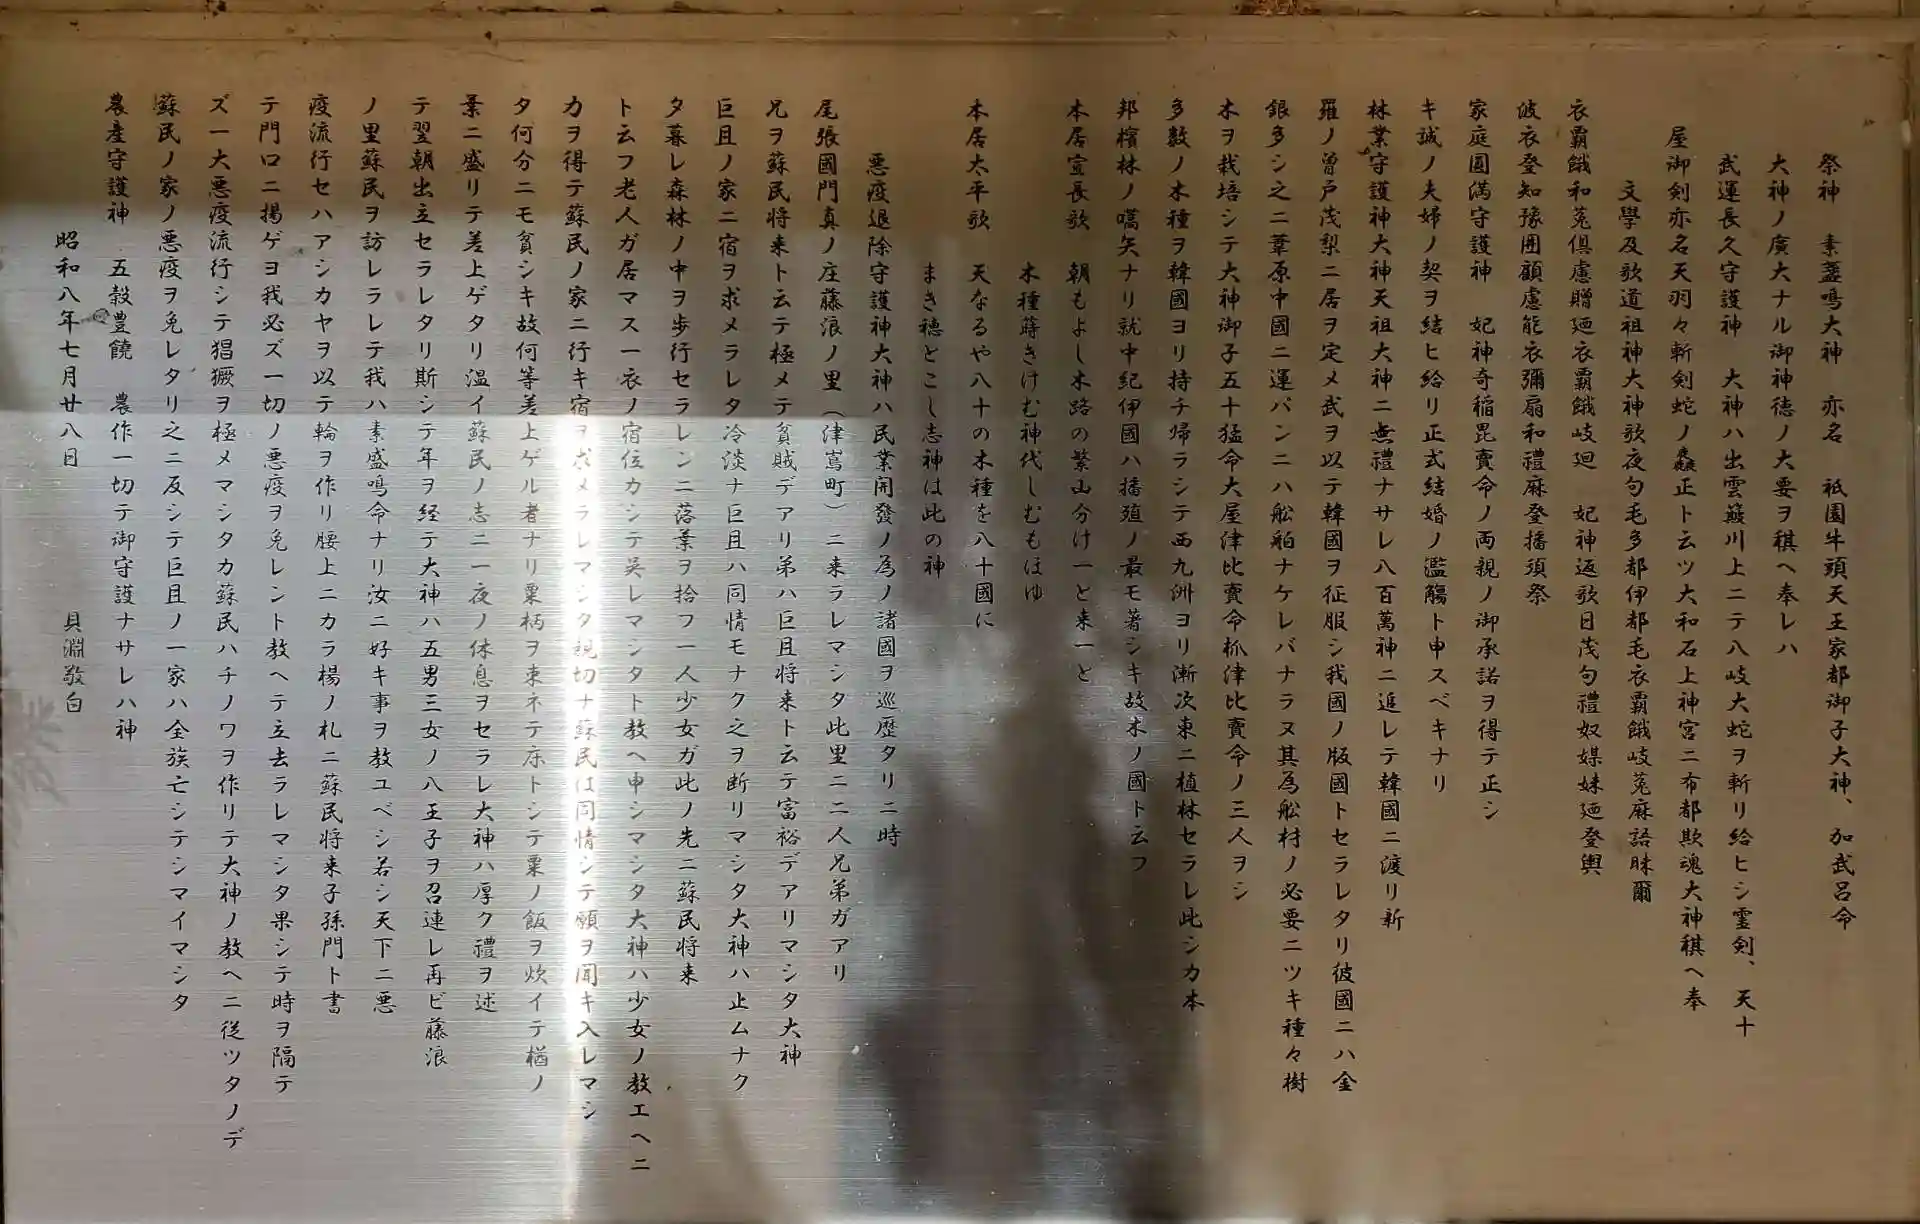 祭神　素盞鳴大神　亦名　祇園牛頭天王家都御子大神、加武呂命
大神ノ廣大ナル御神徳ノ大要ヲ稘ヘ奉レハ
武運長久守護神　大神ハ出雲簸川上ニテ八岐大蛇ヲ斬リ給ヒシ霊剣、天十
屋御剣亦名天羽々斬剣蛇ノ麁正ト云ツ大和石上神宮ニ布都欺魂大神稘ヘ奉
文學及歌道祖神大神歌夜句毛多都伊都毛衣覇餓岐菟麻語昧爾
衣覇餓和菟倶慮贈廼衣覇餓岐廻　妃神返歌日茂句禮奴媒妹廼登輿
波衣登知豫囲願慮能衣彌扇和禮麻登播須祭
家庭圓満守護神　妃神奇稲毘賣命ノ両親ノ御承諾ヲ得テ正シ
キ誠ノ夫婦ノ契ヲ結ヒ給リ正式結婚ノ濫觴ト申スベキナリ
林業守護神大神天祖大神ニ無禮ナサレ八百萬神ニ追レテ韓國ニ渡リ新
羅ノ曽戸茂梨ニ居ヲ定メ武ヲ以テ韓國ヲ征服シ我國ノ版國トセラレタリ彼國ニハ金
銀多シ之ニ葦原中國ニ運バンニハ舩舶ナケレバナラヌ其為舩材ノ必要ニツキ種々樹
木ヲ栽培シテ大神御子五十猛命大屋津比賣命枛津比賣命ノ三人ヲシ
多数ノ木種ヲ韓國ヨリ持チ帰ラシテ西九洲ヨリ漸次東ニ植林セラレ此シカ本
邦檳林ノ嚆矢ナリ就中紀伊國ハ播殖ノ最モ著シキ故木ノ國ト云フ
本居宣長歌　朝もよし木路の繁山分け一と来一と
木種蒔きけむ神代しむもほゆ
本居太平歌　天なるや八十の木種を八十國に
まき穂とこし志神は此の神
悪疫退除守護神大神ハ民業開發ノ為ノ諸國ヲ巡歴タリニ時
尾張國門真ノ庄藤浪ノ里（津嶌町）ニ来ラレマシタ此里ニ二人兄弟ガアリ
兄ヲ蘇民将来ト云テ極メテ貧賊デアリ弟ハ巨且将来ト云テ富裕デアリマシタ大神
巨且ノ家ニ宿ヲ求メラレタ冷淡ナ巨且ハ同情モナク之ヲ断リマシタ大神ハ止ムナク
タ暮レ森林ノ中ヲ歩行セラレンニ落葉ヲ拾フ一人少女ガ此ノ先ニ蘇民将来
ト云フ老人ガ居マス一衣ノ宿位カシテ呉レマシタト教ヘ申シマシタ大神ハ少女ノ教エヘニ
カヲ得テ蘇民ノ家ニ行キ宿ヲ求メラレマシタ親切ナ蘇民は同情シテ願ヲ聞キ入レマシ
タ何分ニモ貧シキ故何等差上ゲル者ナリ粟柄ヲ束ネテ床トシテ粟ノ飯ヲ炊イテ楢ノ
葉ニ盛リテ差上ゲタリ温イ蘇民ノ志ニ一夜ノ休息ヲセラレ大神ハ厚ク禮ヲ述
テ翌朝出立セラレタリ斯シテ年ヲ経テ大神ハ五男三女ノ八王子ヲ召連レ再ビ藤浪
ノ里蘇民ヲ訪レラレテ我ハ素盛鳴命ナリ汝ニ好キ事ヲ教ユベシ若シ天下ニ悪
疫流行セハアシカヤヲ以テ輪ヲ作リ腰上ニカラ楊ノ札ニ蘇民将来子孫門ト書
テ門口ニ揚ゲヨ我必ズ一切ノ悪疫ヲ免レント教ヘテ立去ラレマシタ果シテ時ヲ隔テ
ズ一大悪疫流行シテ猖獗ヲ極メマシタカ蘇民ハチノワヲ作リテ大神ノ教ヘニ従ツタノデ
蘇民ノ家ノ悪疫ヲ免レタリ之ニ反シテ巨且ノ一家ハ全族亡シテシマイマシタ
農産守護神　五穀豊饒　農作一切テ御守護ナサレハ神
昭和八年七月廿八日　貝淵敬白